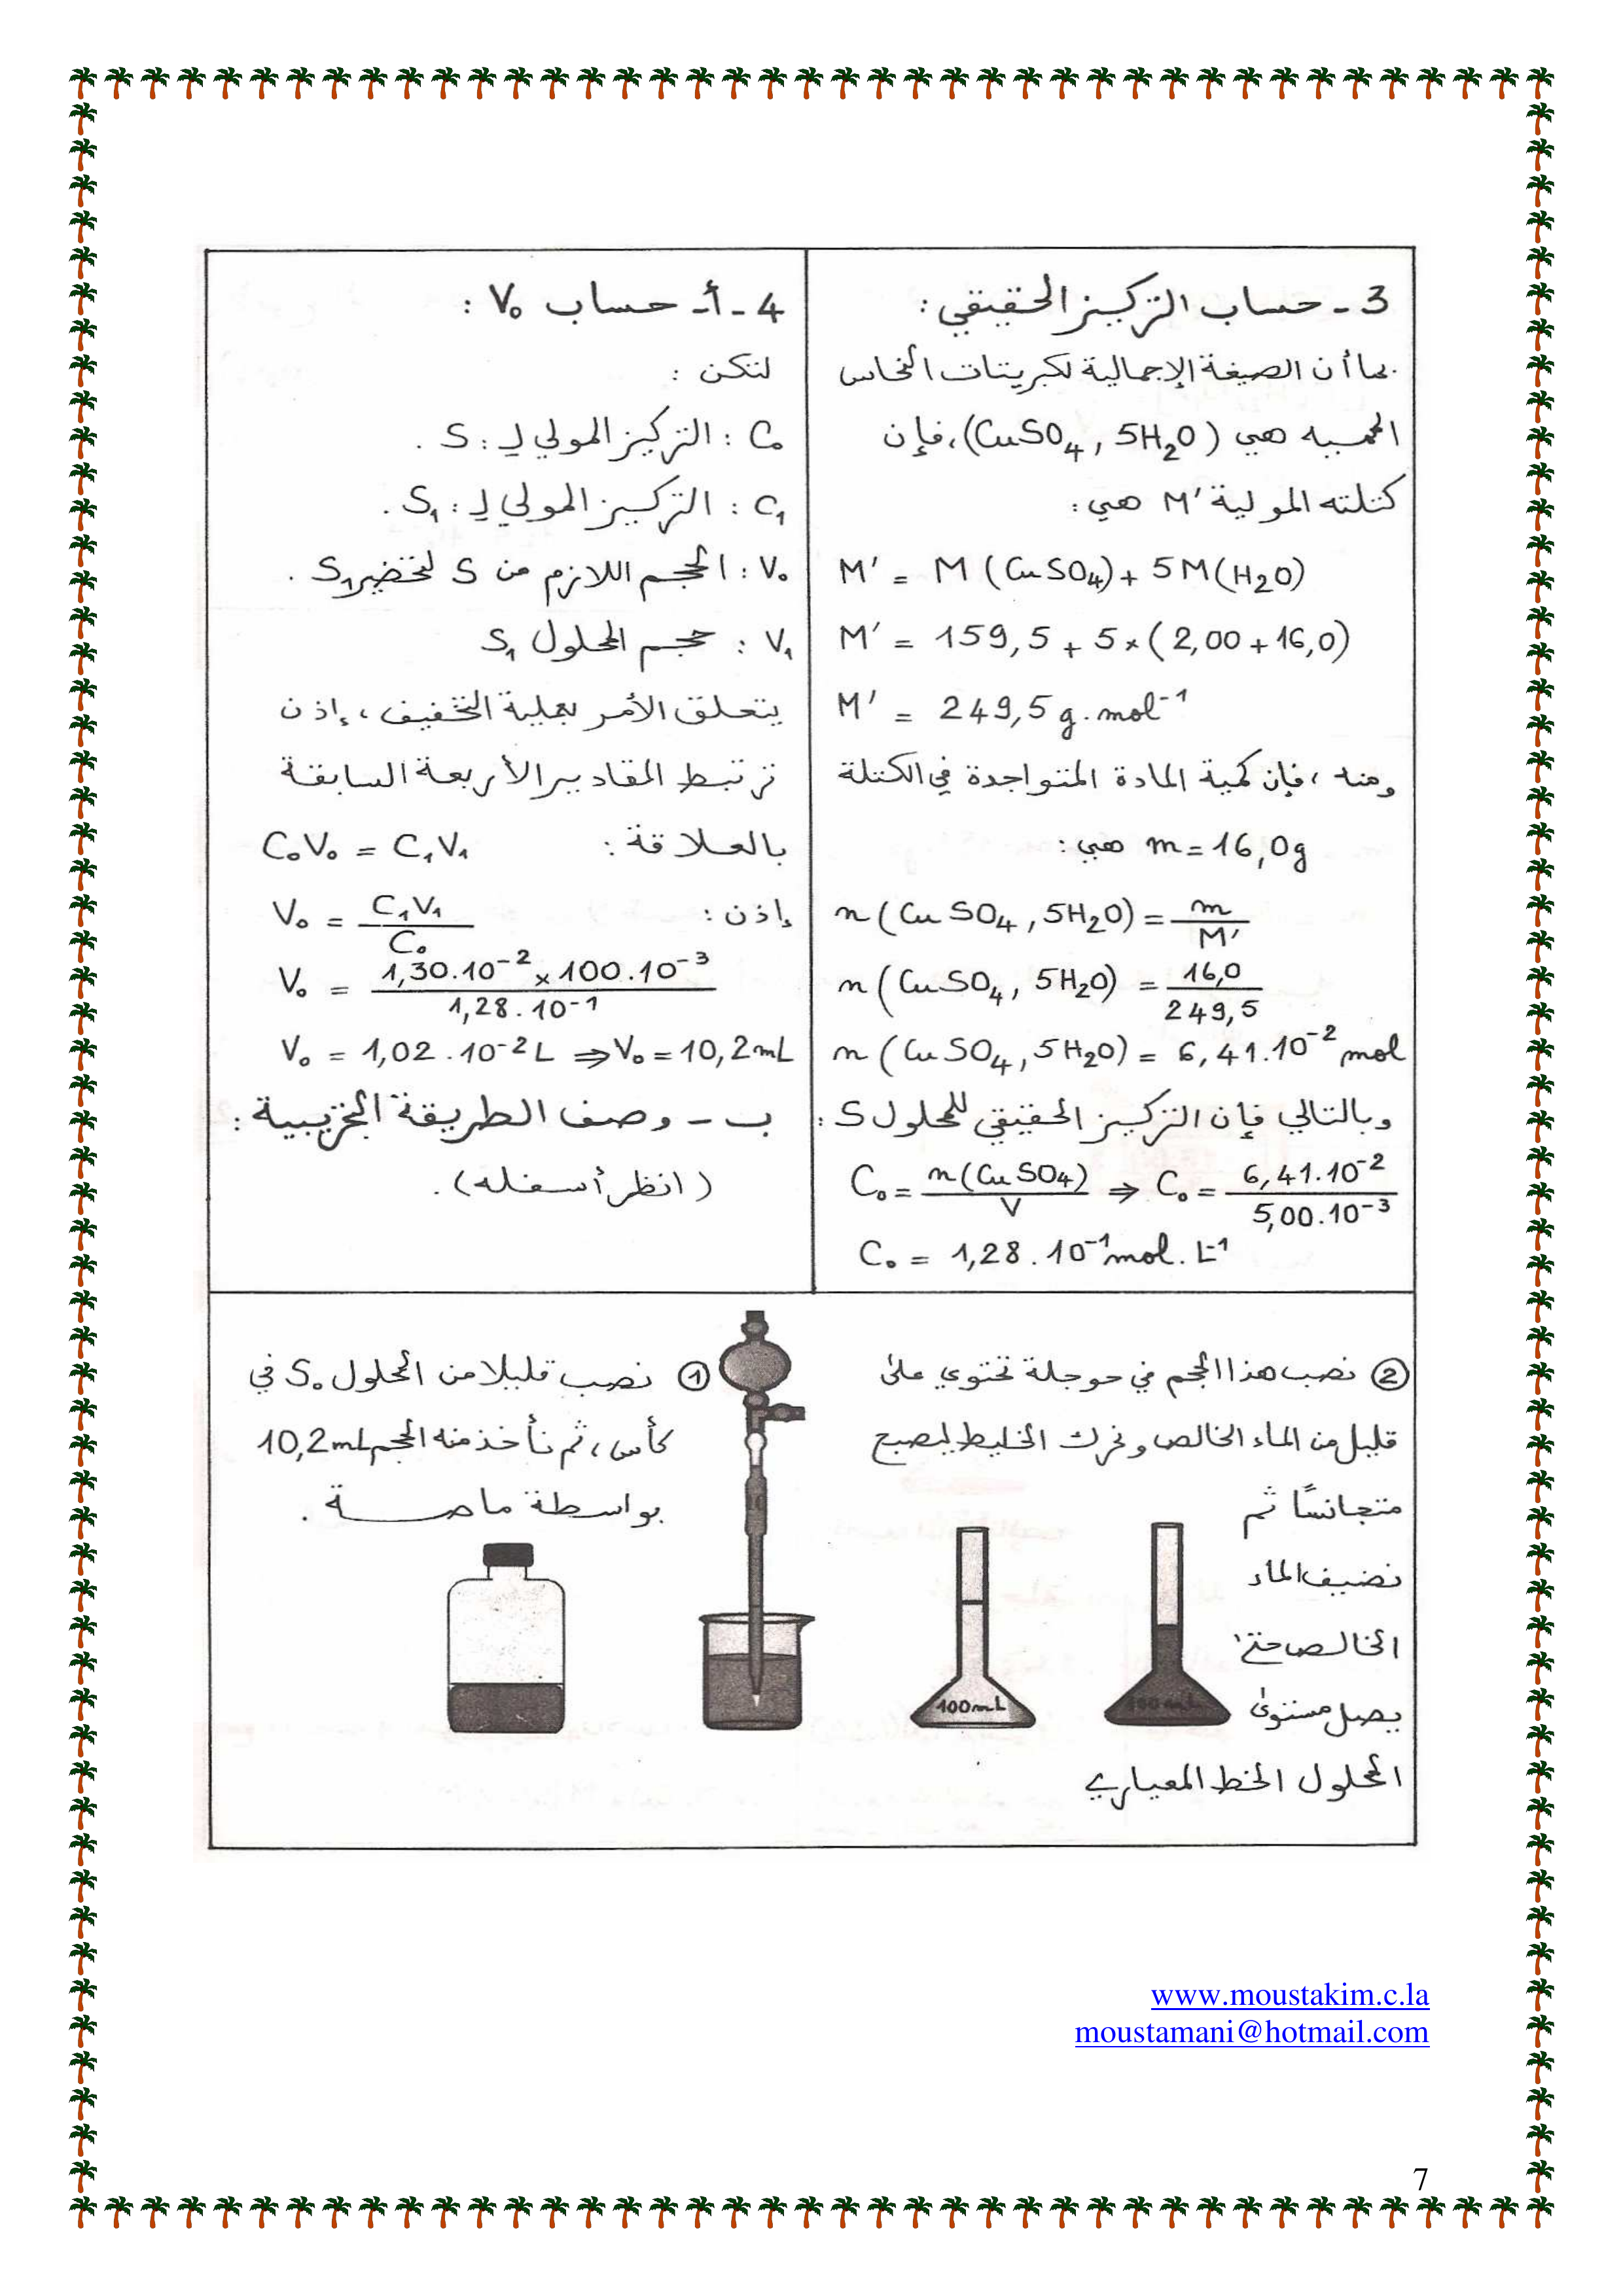 3 - حساب التركيز الحقيقي :
بما أن الصيغة الإجمالية لكبريتات النحاس
المميه هي (CuSO₄ , 5H₂O)، فإن
كتلته المولية M' هي :
M' = M (CuSO₄) + 5M(H₂O)
M' = 159,5 + 5×(2,00 + 16,0)
M' = 249,5 g.mol⁻¹
ومنه ، فإن كمية المادة المتواجدة في الكتلة
m = 16,0g هي :
n (CuSO₄ , 5H₂O) = m / M'
n (CuSO₄ , 5H₂O) = 16,0 / 249,5
n (CuSO₄ , 5H₂O) = 6,41.10⁻² mol
وبالتالي فإن التركيز الحقيقي للمحلول S :
C₀ = n(CuSO₄) / V ⇒ C₀ = 6,41.10⁻² / 5,00.10⁻³
C₀ = 1,28 . 10⁻¹ mol . L⁻¹
4 - أ - حساب V₀ :
لتكن :
C₀ : التركيز المولي لـ : S .
C₁ : التركيز المولي لـ : S₁ .
V₀ : الحجم اللازم من S لتحضير S₁ .
V₁ : حجم المحلول S₁
يتعلق الأمر بعملية التخفيف ، إذن
ترتبط المقادير الأربعة السابقة
بالعلاقة : C₀V₀ = C₁V₁
إذن : V₀ = C₁V₁ / C₀
V₀ = 1,30.10⁻² × 100.10⁻³ / 1,28 . 10⁻¹
V₀ = 1,02 . 10⁻² L ⇒ V₀ = 10,2 mL
ب - وصف الطريقة التجريبية :
( انظر أسفله ) .
① نصب قليلا من المحلول S₀ في
كأس ، ثم نأخذ منه الحجم 10,2mL
بواسطة ماصة .
② نصب هذا الحجم في حوجلة تحتوي على
قليل من الماء الخالص و نحرك الخليط ليصبح
متجانسًا ثم
نضيف الماء
الخالص حتى
يصل مستوى
المحلول الخط المعياري
100mL
100mL
www.moustakim.c.la
moustamani@hotmail.com
7